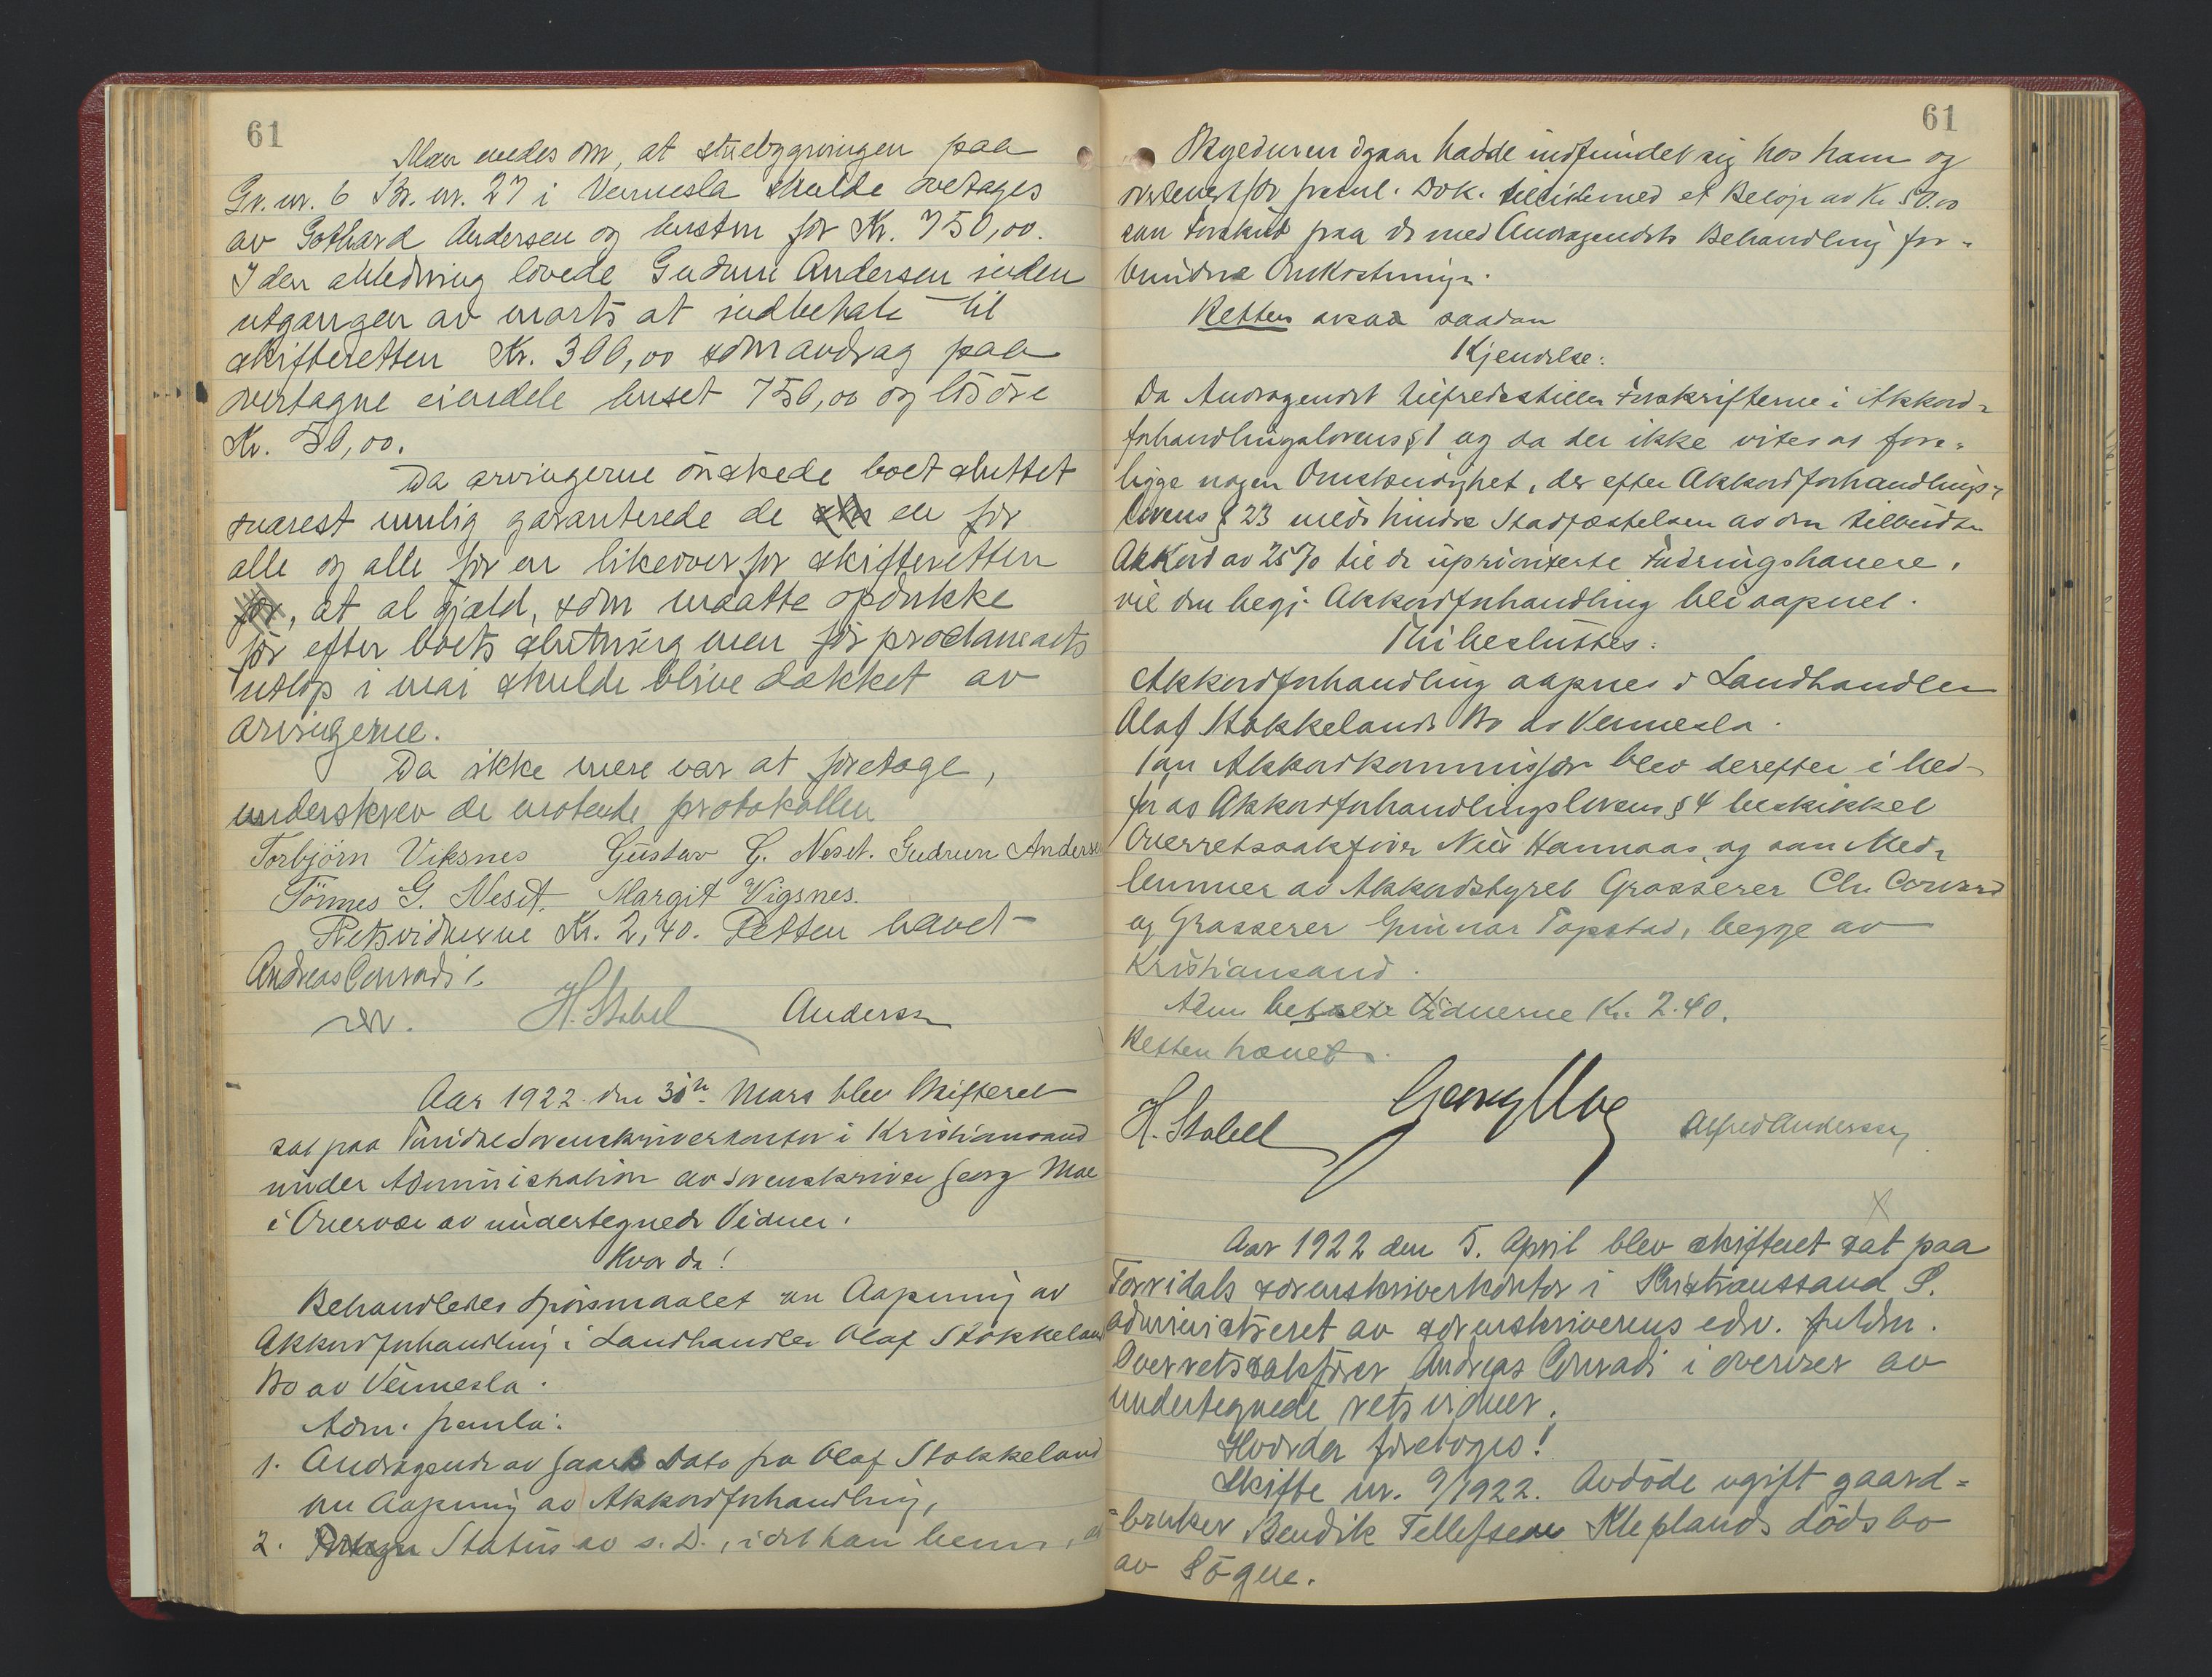 61
Man enedes om, at stuebygningen paa
Gr. nr. 6 Br. nr. 27 i Vennesla skulde overtages
av Gothard Andersen og hustru for Kr. 750,00.
I den anledning lovede Gudrun Andersen inden
utgangen av marts at indbetale til
skifteretten Kr. 300,00 som avdrag paa
overtagne eiendele huset 750,00 og lösöre
Kr. 50,00.
Da arvingerne önskede boet sluttet
snarest mulig garanterede de en for
alle og alle for en likeoverfor skifteretten
for, at al gjæld, som maatte opdukke
for efter boets slutning men för proclamaets
utlöp i mai skulde blive dækket av
arvingerne.
Da ikke mere var at foretage,
underskrev de mötende protokollen
Torbjörn Viksnes Gustav G. Neset. Gudrun Andersen
Tönnes G. Neset. Margit Vigsnes.
Retsvidnerne Kr. 2,40. Retten hævet
Andreas Conradi
H. Stabel Andersen
Aar 1922 den 30te Mars blev Skifteret
sat paa Torridal Sorenskriverkontor i Kristiansand
under Administration av Sorenskriver Georg Moe
i Overvær av undertegnede Vidner.
Hvor da!
Behandledes Spörsmaalet om Aapning av
Akkordforhandling i Landhandler Olaf Stokkeland
Bo av Vennesla.
Adm. freml.:
1. Andragende av Gaars Dato fra Olaf Stokkeland
om Aapning av Akkordforhandling,
2. Status av s. D., idet han bem., at
61
Skyldneren igaar hadde indfundet sig hos ham og
overlevert for freml. Dok. tillikemed et Belöp av Kr. 50.00
som Forskud paa de med Andragendets Behandling for-
bundne Omkostninger.
Retten avsaa saadan
Kjendelse:
Da Andragendet tilfredsstiller Forskrifterne i Akkord-
forhandlingslovens § 1 og da der ikke vites at fore-
ligge nogen Omstændighet, der efter Akkordforhandlings-
lovens § 23 vilde hindre Stadfæstelsen av den tilbudte
Akkord av 25% til de uprioriterte Fordringshavere,
vil den begj. Akkordforhandling bli aapnet.
Thi besluttes:
Akkordforhandling aapnes i Landhandler
Olaf Stokkelands Bo av Vennesla.
Som Akkordkommissær blev derefter i Med-
för av Akkordforhandlingslovens § 4 beskikket
Overretssakförer Nils Hannaas, og som Med-
lemmer av Akkordstyret Grosserer Chr.
og Grosserer Gunnar Topstad, begge av
Kristiansand.
Adm. betalte Vidnerne Kr. 2.40.
Retten hævet.
H. Stabell Georg Moe Alfred Andersen
x
Aar 1922 den 5. April blev skifteret sat paa
Torridals sorenskriverkontor i Kristianssand S.
administreret av sorenskriverens edsv. fuldm.
Overretssakförer Andreas Conradi i overvær av
undertegnede retsvidner.
Hvorda foretoges!
Skifte nr. 9/1922. Avdöde ugift gaard=
=bruker Bendik Tellefsen Kleplands dödsbo
av Sögne.